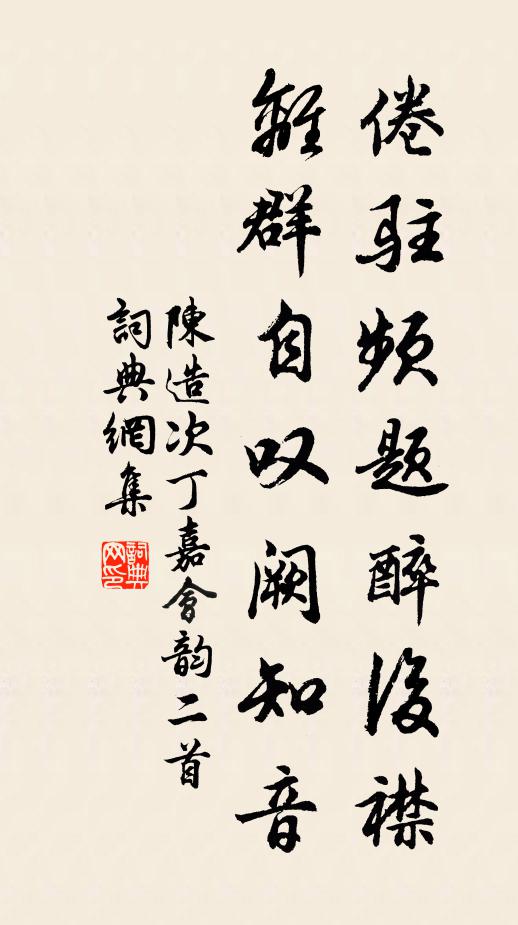 倦驻频题醉後襟
離群自叹阙知音
陳造次丁嘉會韵二首
詞典網集
詞典网印